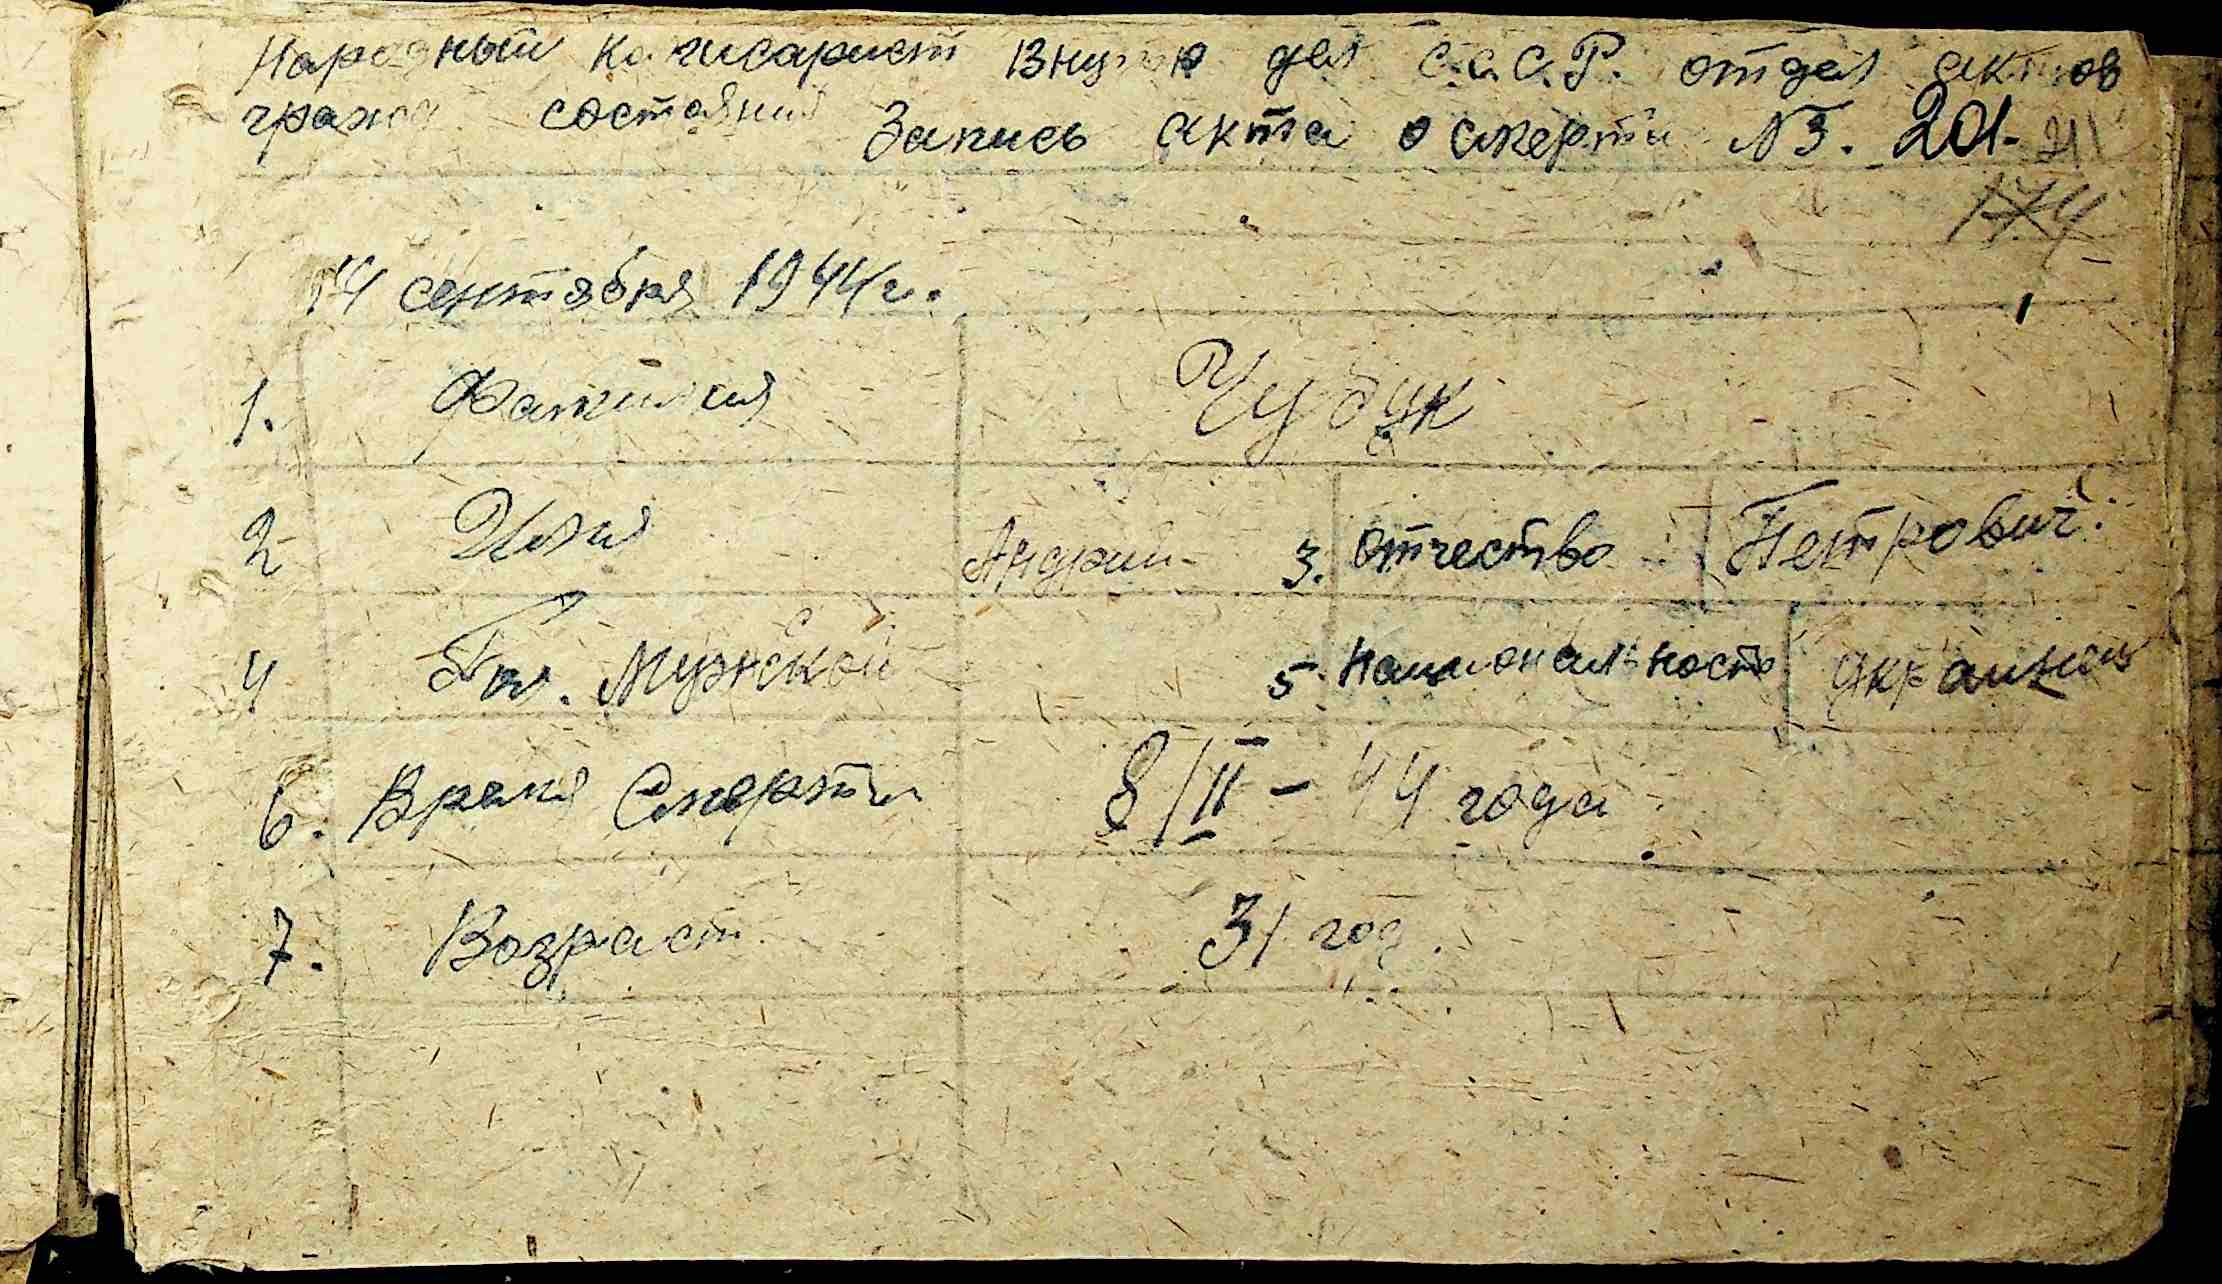 Народный комисариат Внутр дел С.С.С.Р. отдел актов
гражд состояния Запись акта о смерти №3. 201. 211
174
14 сентября 1944 г.
1. Фамилия Чубук
2 Имя Андрий 3. Отчество Петрович
4 Пол. Мужской 5. Национальность Украинец
6. Время Смерти 8/II - 44 года
7. Возраст 31 год.